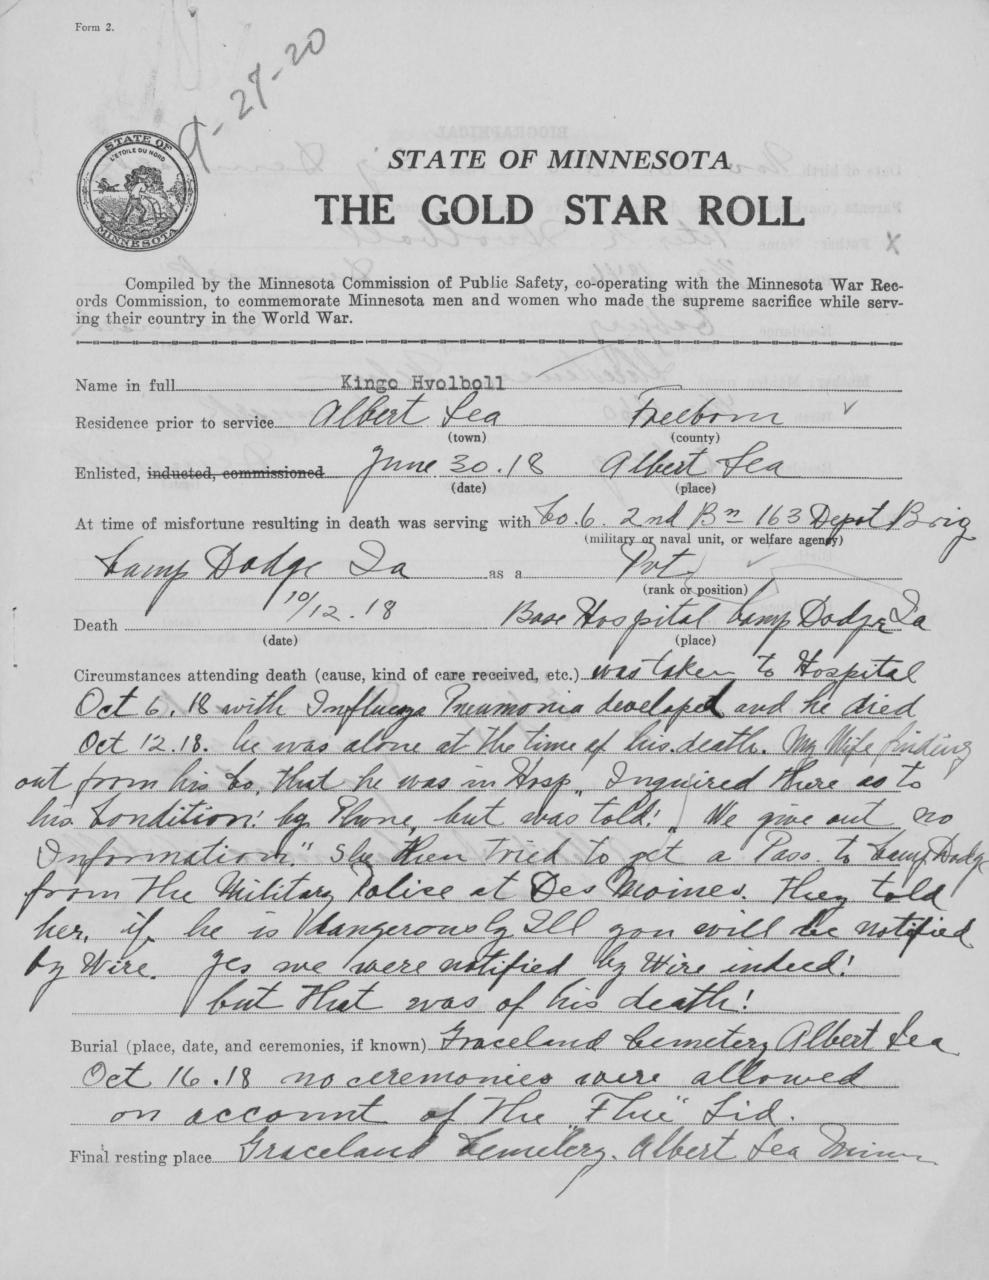 Form 2.
9-27-20
STATE OF
L'ETOILE DU NORD
MINNESOTA
STATE OF MINNESOTA
THE GOLD STAR ROLL
Compiled by the Minnesota Commission of Public Safety, co-operating with the Minnesota War Rec-
ords Commission, to commemorate Minnesota men and women who made the supreme sacrifice while serv-
ing their country in the World War.
Name in full Kingo Hvolboll
Residence prior to service Albert Lea Freeborn
(town) (county)
Enlisted, inducted, commissioned June 30.18 Albert Lea
(date) (place)
At time of misfortune resulting in death was serving with Co. 6. 2nd Bn 163 Depot Brig
(military or naval unit, or welfare agency)
Camp Dodge Ia as a Pvt
(rank or position)
Death 10/12.18 Base Hospital Camp Dodge Ia
(date) (place)
Circumstances attending death (cause, kind of care received, etc.) was taken to Hospital
Oct 6.18 with Pneumonia developed and he died
Oct 12.18. he was alone at the time of his death. My Wife finding
out from his Co, that he was in Hosp,, Inquired there as to
his Condition! by Phone, but was told! „ We give out no
Information" She then tried to get a Pass. to Camp Dodge
from the Military Police at Des Moines. They told
her, if he is dangerously Ill you will be notified
by Wire. Yes we were notified by Wire indeed!
but that was of his death!
Burial (place, date, and ceremonies, if known) Graceland Cemetery Albert Lea
Oct 16.18 no ceremonies were allowed
on account of the "Flue" Lid.
Final resting place Graceland Cemetery. Albert Lea Minn